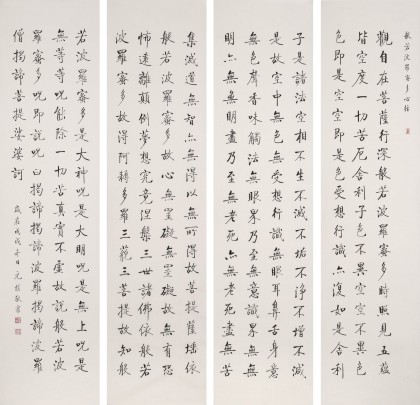 般若波羅蜜多心經
觀自在菩薩行深般若波羅蜜多時照見五蘊
皆空度一切苦厄舍利子色不異空空不異色
色即是空空即是色受想行識亦復如是舍利
子是諸法空相不生不滅不垢不淨不增不減
是故空中無色無受想行識無眼耳鼻舌身意
無色聲香味觸法無眼界乃至無意識界無無
明亦無無明盡乃至無老死亦無老死盡無苦
集滅道無智亦無得以無所得故菩提薩埵依
般若波羅蜜多故心無罣礙無罣礙故無有恐
怖遠離顛倒夢想究竟涅槃三世諸佛依般若
波羅蜜多故得阿耨多羅三藐三菩提故知般
若波羅蜜多是大神咒是大明咒是無上咒是
無等等咒能除一切苦真實不虛故說般若波
羅蜜多咒即說咒曰揭諦揭諦波羅揭諦波羅
僧揭諦菩提娑婆訶
歲在戊戌冬日